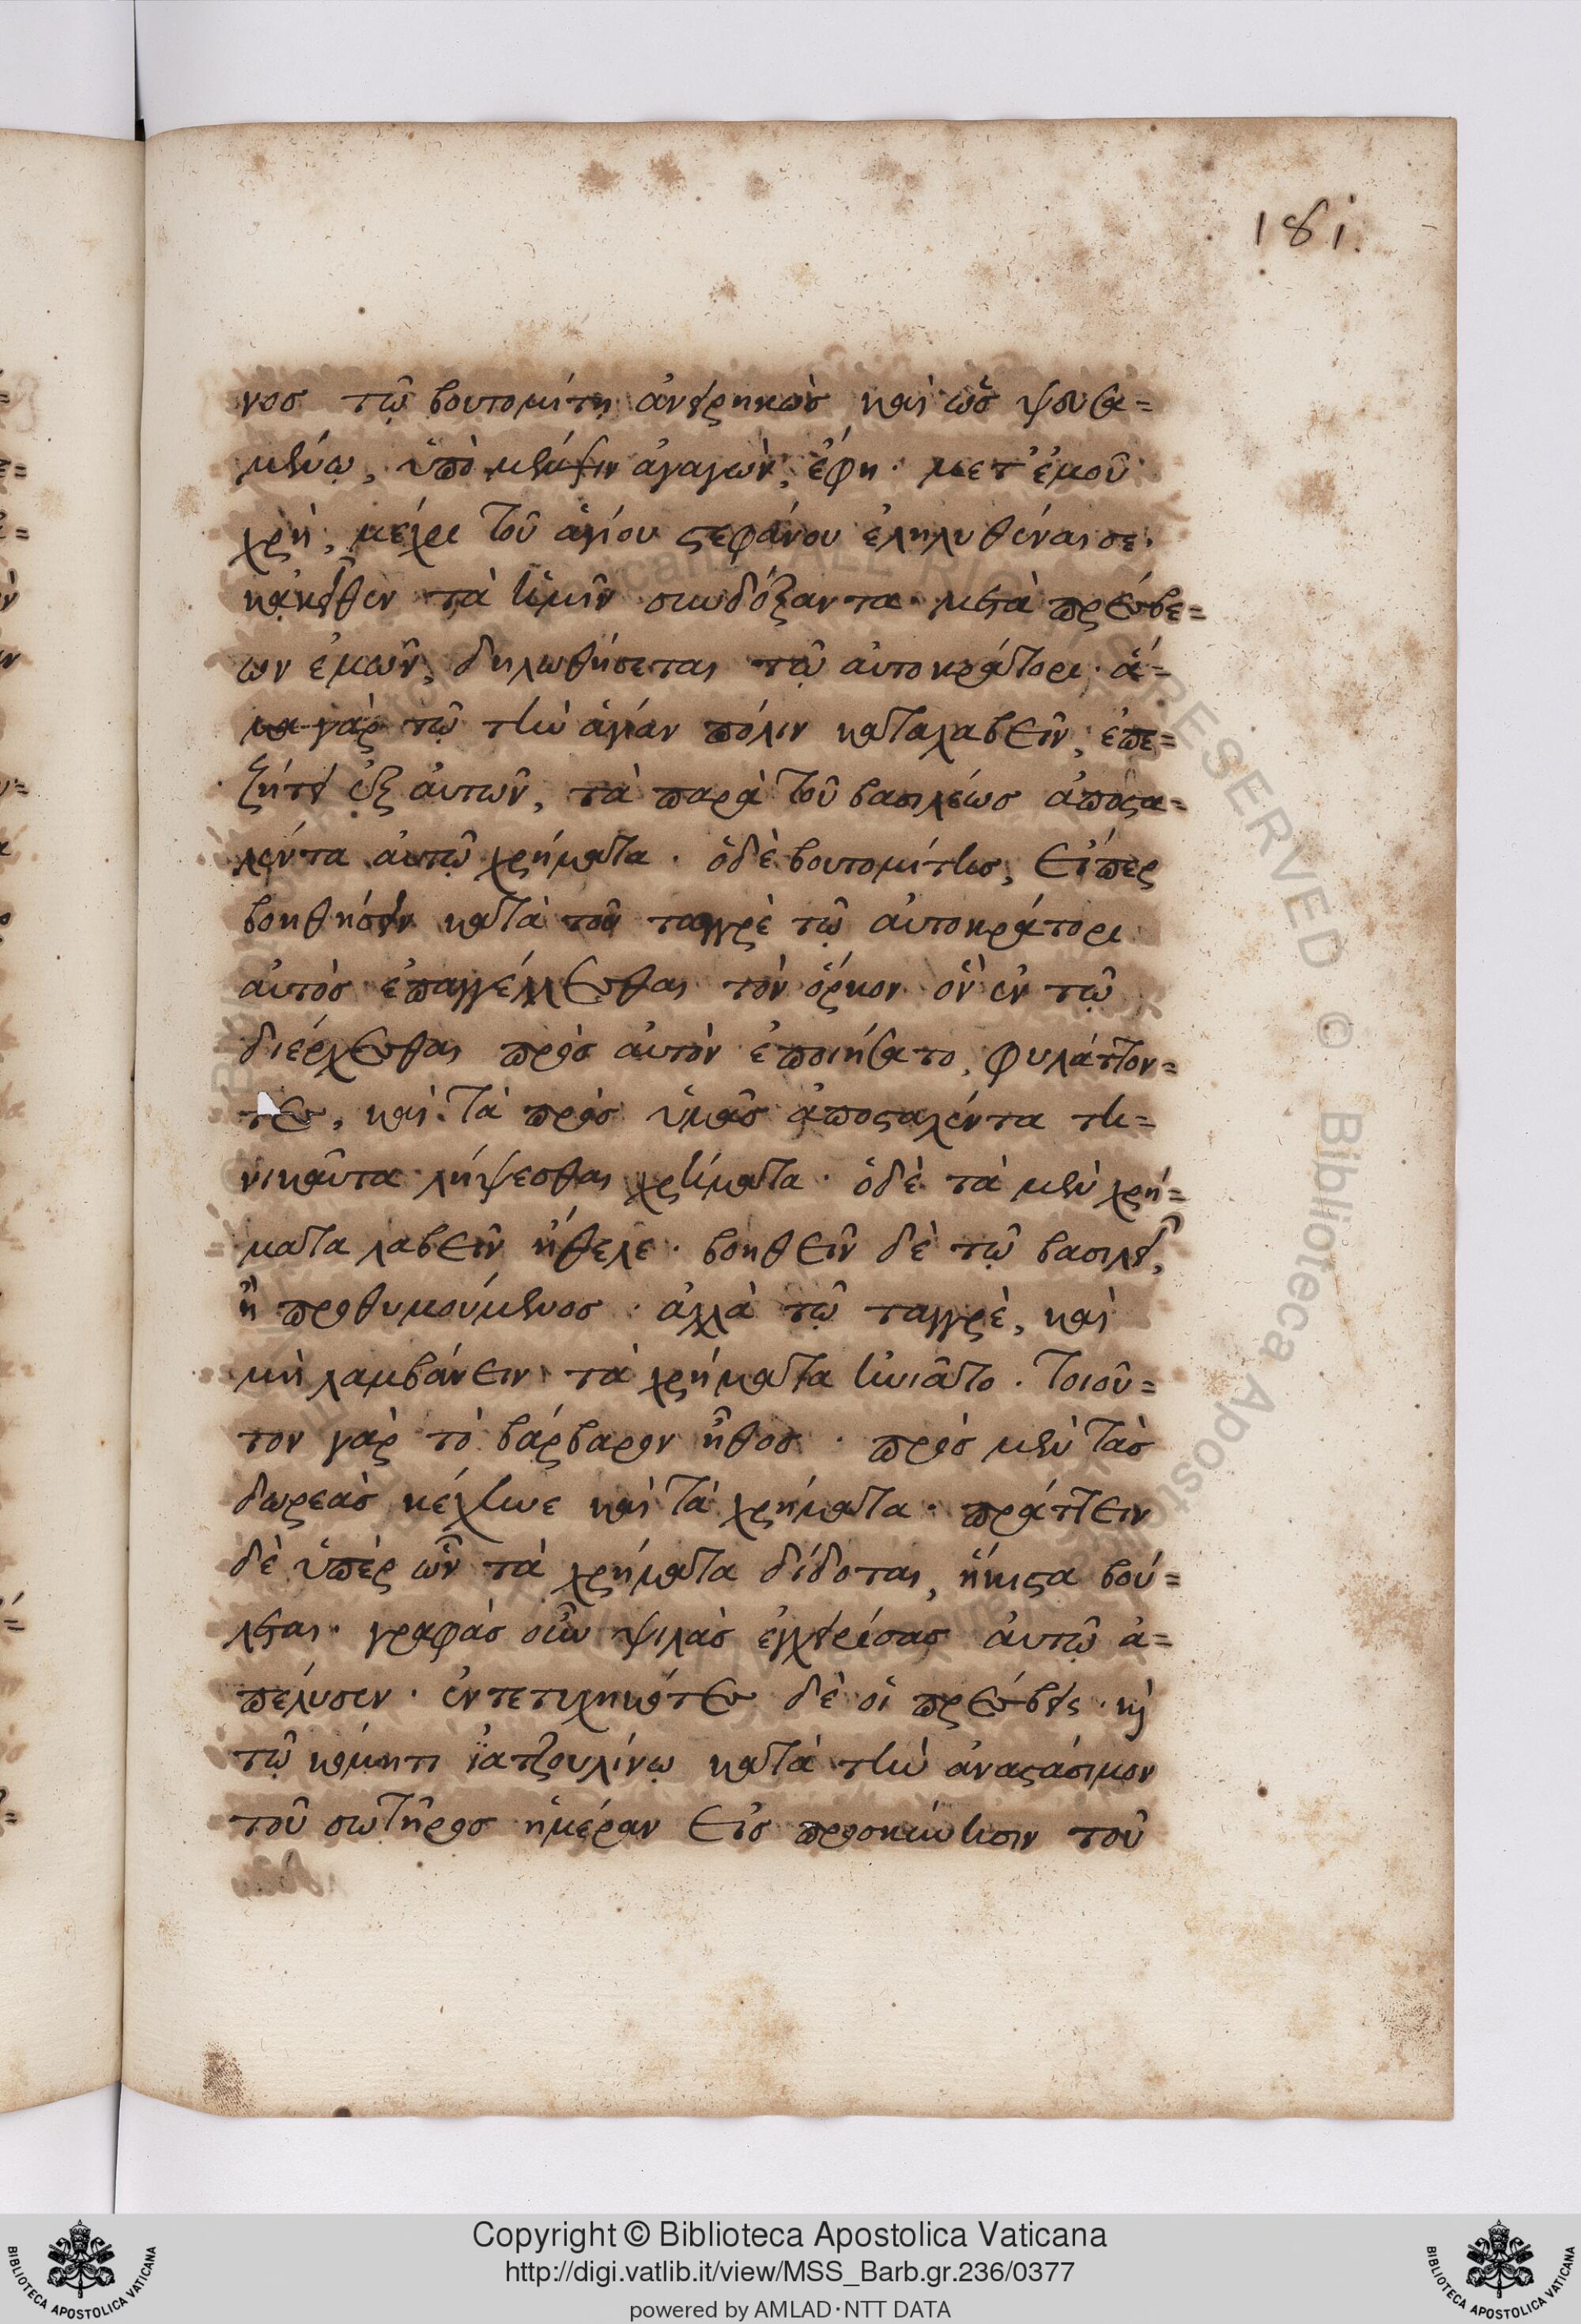 181.
νος τῷ βουτομίτῃ ἀνειρηκὼς καὶ ὡς ψευσα=
μένῳ, ὑπὸ μέμψιν ἀγαγὼν, ἔφη· μετ' ἐμοῦ
χρὴ, μέχρι τοῦ ἁγίου στεφάνου ἐληλυθέναι σε·
κἀκεῖθεν τὰ ἡμῖν συνδόξαντα μετὰ πρέσβε=
ων ἐμῶν, δηλωθήσεται τῷ αὐτοκράτορι· ἅ=
μα γὰρ τῷ τὴν ἁγίαν πόλιν καταλαβεῖν, ἐπε=
ζήτει ἐξ αὐτῶν, τὰ παρὰ τοῦ βασιλέως ἀποστα=
λέντα αὐτῷ χρήματα· ὁ δὲ βουτομίτης, εἴπερ
βοηθήσειν κατὰ τοῦ ταγγρὲ τῷ αὐτοκράτορι
αὐτὸς ἐπαγγέλλεσθαι τὸν ὅρκον ὃν ἐν τῷ
διέρχεσθαι πρὸς αὐτὸν ἐποιήσατο, φυλάττον=
τες, καὶ τὰ πρὸς ὑμᾶς ἀποσταλέντα τη=
νικαῦτα λήψεσθαι χρήματα· ὁ δὲ τὰ μὲν χρή=
ματα λαβεῖν ἤθελε· βοηθεῖν δὲ τῷ βασιλεῖ,
ἢ προθυμούμενος· ἀλλὰ τῷ ταγγρὲ, καὶ
μὴ λαμβάνειν τὰ χρήματα ἠνιᾶτο. τοιοῦ=
τον γὰρ τὸ βάρβαρον ἦθος· πρὸς μὲν τὰς
δωρεὰς κέχηνε καὶ τὰ χρήματα· πράττειν
δὲ ὑπὲρ ὧν τὰ χρήματα δίδοται, ἥκιστα βού=
λεται· γραφὰς οὖν ψιλὰς ἐγχειρίσας αὐτῷ ἀ=
πέλυσεν· ἐντετυχηκότες δὲ οἱ πρέσβεις· κὶ
τῷ κόμητι ϊατζουλίνῳ κατὰ τὴν ἀναστάσιμον
τοῦ σωτῆρος ἡμέραν εἰς προσκύνησιν τοῦ
Copyright © Biblioteca Apostolica Vaticana
http://digi.vatlib.it/view/MSS_Barb.gr.236/0377
powered by AMLAD·NTT DATA
BIBLIOTECA APOSTOLICA VATICANA
BIBLIOTECA APOSTOLICA VATICANA